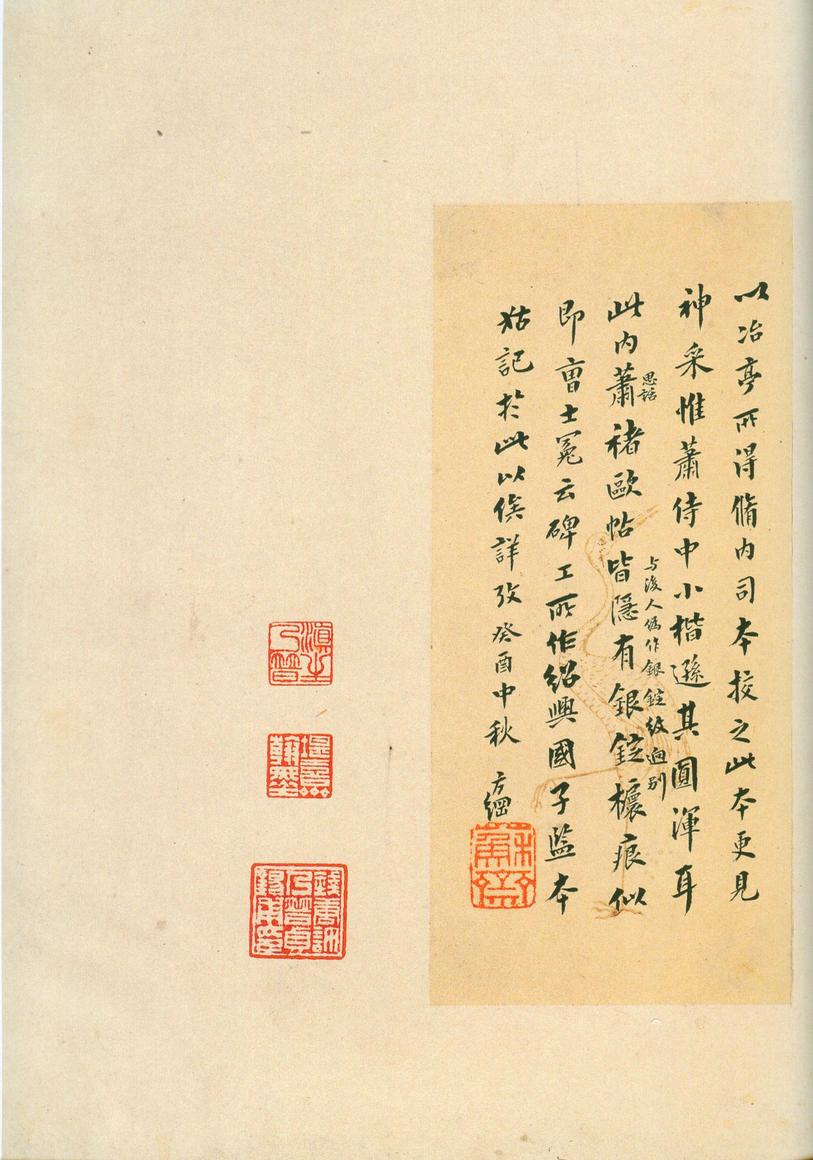 以冶亭所得脩内司本挍之此本更見
神采惟蕭侍中小楷遜其圓渾耳
此内蕭思話褚歐帖皆隱有銀錠欀痕似
与後人偽作銀錠紋迥别
即曹士冕云碑工所作紹興國子監本
姑記於此以俟詳攷癸酉中秋 方綱
蘇齋